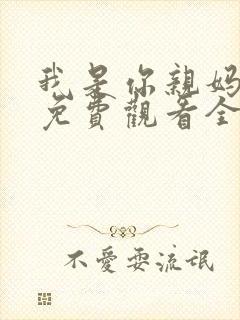 我是你親媽
免費觀看全
不愛耍流氓